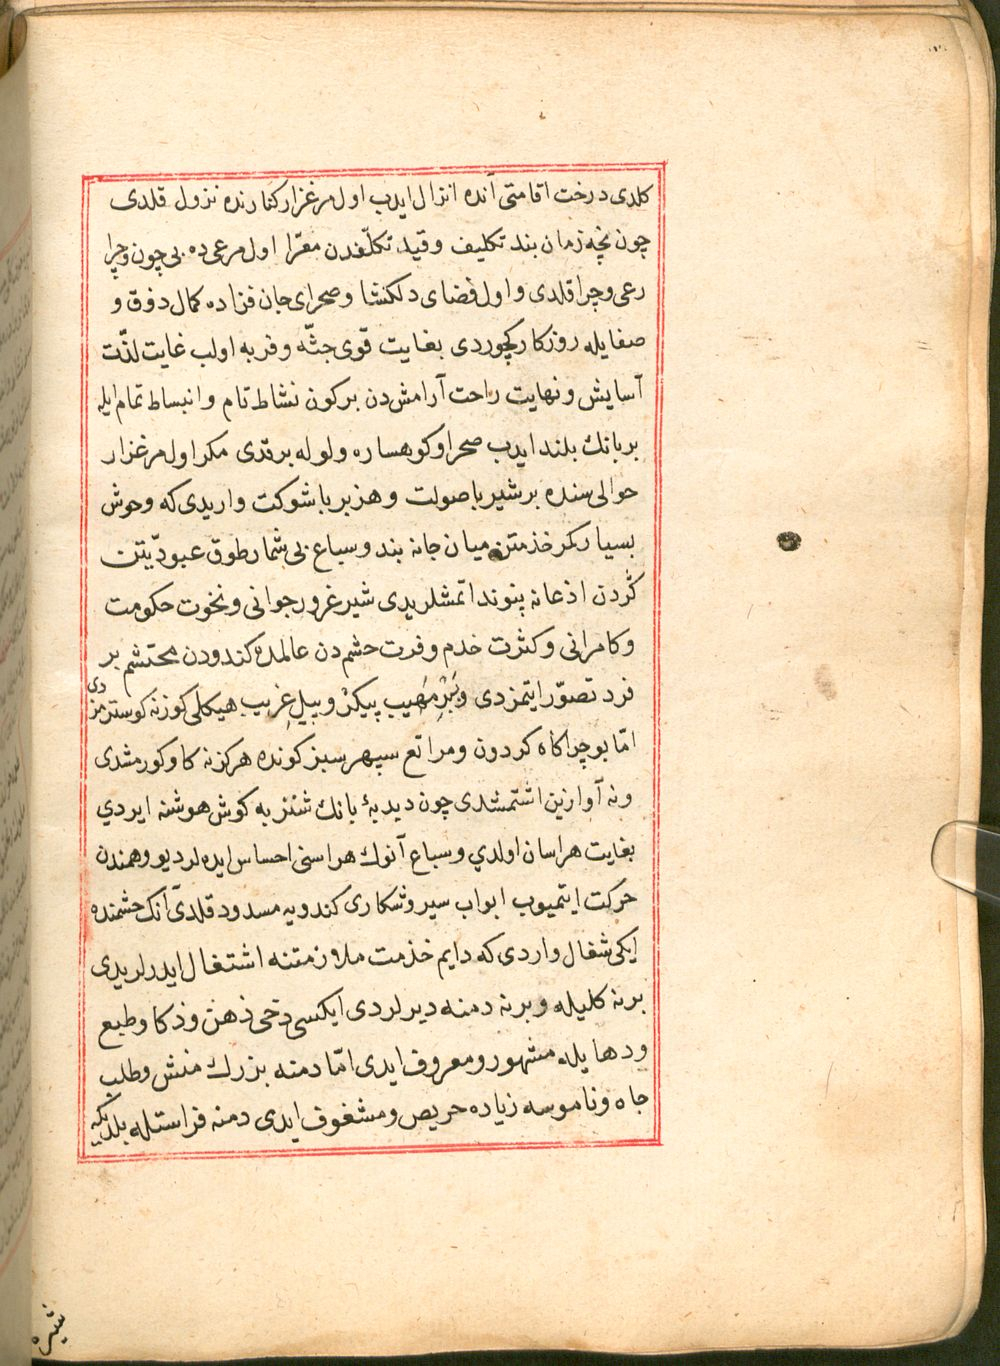 كلدى درخت اقامتى آنده انزال ايدب اول مرغزار كنارنده نزول قلدى
چون نچه زمان بند تكليف و قيد تكلّفدن معرّا اول مرعى ده بى چون و چرا
رعى و چرا قلدى و اول فضاى دلكشا و صحراى جان فزاده كمال ذوق و
صفايله روزكار كچوردى بغايت قوى جثّه و فربه اولب غايت لذّت
آسايش و نهايت راحت آرامش دن بركون نشاط تام و انبساط تمام ايله
بر بانك بلند ايدب صحرا و كوهساره ولوله برقدى مكر اول مرغزار
حوالى سنده بر شير با صولت و هزبر با شوكت واريدى كه وحوش
بسيار كمر خذمتن ميان جانه بند و سباع بى شمار طوق عبوديّتن
كردن اذعانه پيوند اتمشلريدى شير غرور جوانى و نخوت حكومت
و كامرانى و كثرت خدم و فرت حشم دن عالمده كندودن محتشم بر
فرد تصوّر ايتمزدى و ببر مهيب پيكر و پيل غريب هيكلى كوزنه كوسترمزدى
امّا بو چراكاه كردون و مراتع سپهر سبز كونده هركز نه كاو كورمشدى
و نه آوازين اشتمشدى چون دبدبهٔ بانك شنزبه كوش هوشنه ايردي
بغايت هراسان اولدي و سباع آنوك هراسنى احساس ايده لر ديو وهمندن
حركت ايتميوب ابواب سير و شكارى كندويه مسدود قلدى آنك حشمنده
ايكى شغال واردى كه دايم خذمت ملازمتنه اشتغال ايدرلريدى
برنه كليله و برنه دمنه ديرلردى ايكسى دخى ذهن و ذكا و طبع
و دهايله مشهور و معروف ايدى امّا دمنه بزرك منش و طلب
جاه و ناموسه زياده حريص و مشغوف ايدى دمنه فراستله بلديكه
شيره